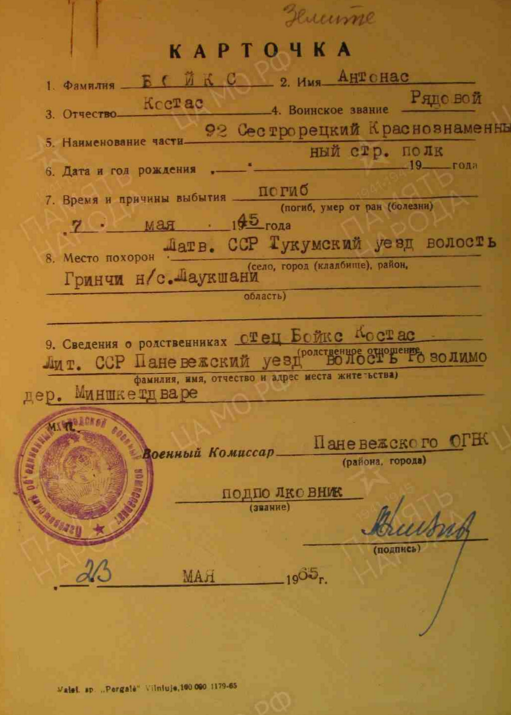 Земите
КАРТОЧКА
1. Фамилия БОЙКС 2. Имя Антонас
3. Отчество Костас 4. Воинское звание Рядовой
5. Наименование части 92 Сестрорецкий Краснознаменны
ный стр. полк
6. Дата и год рождения „ “ 19 года
7. Время и причины выбытия погиб
(погиб, умер от ран (болезни)
7 . мая . 1945 года
Латв. ССР Тукумский уезд волость
8. Место похорон
(село, город (кладбище), район,
Гринчи н/с.Лаукшани
область)
9. Сведения о родственниках отец Бойкс Костас
(родственное отношение,
Лит. ССР Паневежский уезд волость Гоголимо
фамилия, имя, отчество и адрес места жительства)
дер. Миншкетдваре
М.П.
Военный Комиссар Паневежского ОГВК
(района, города)
подполковник
(звание)
(подпись)
„ 23 МАЯ 1965 г.
Valst. sp. „Pergalė" Vilniuje, 100 000 1179-65
ПАМЯТЬ НАРОДА
ЦА МО РФ